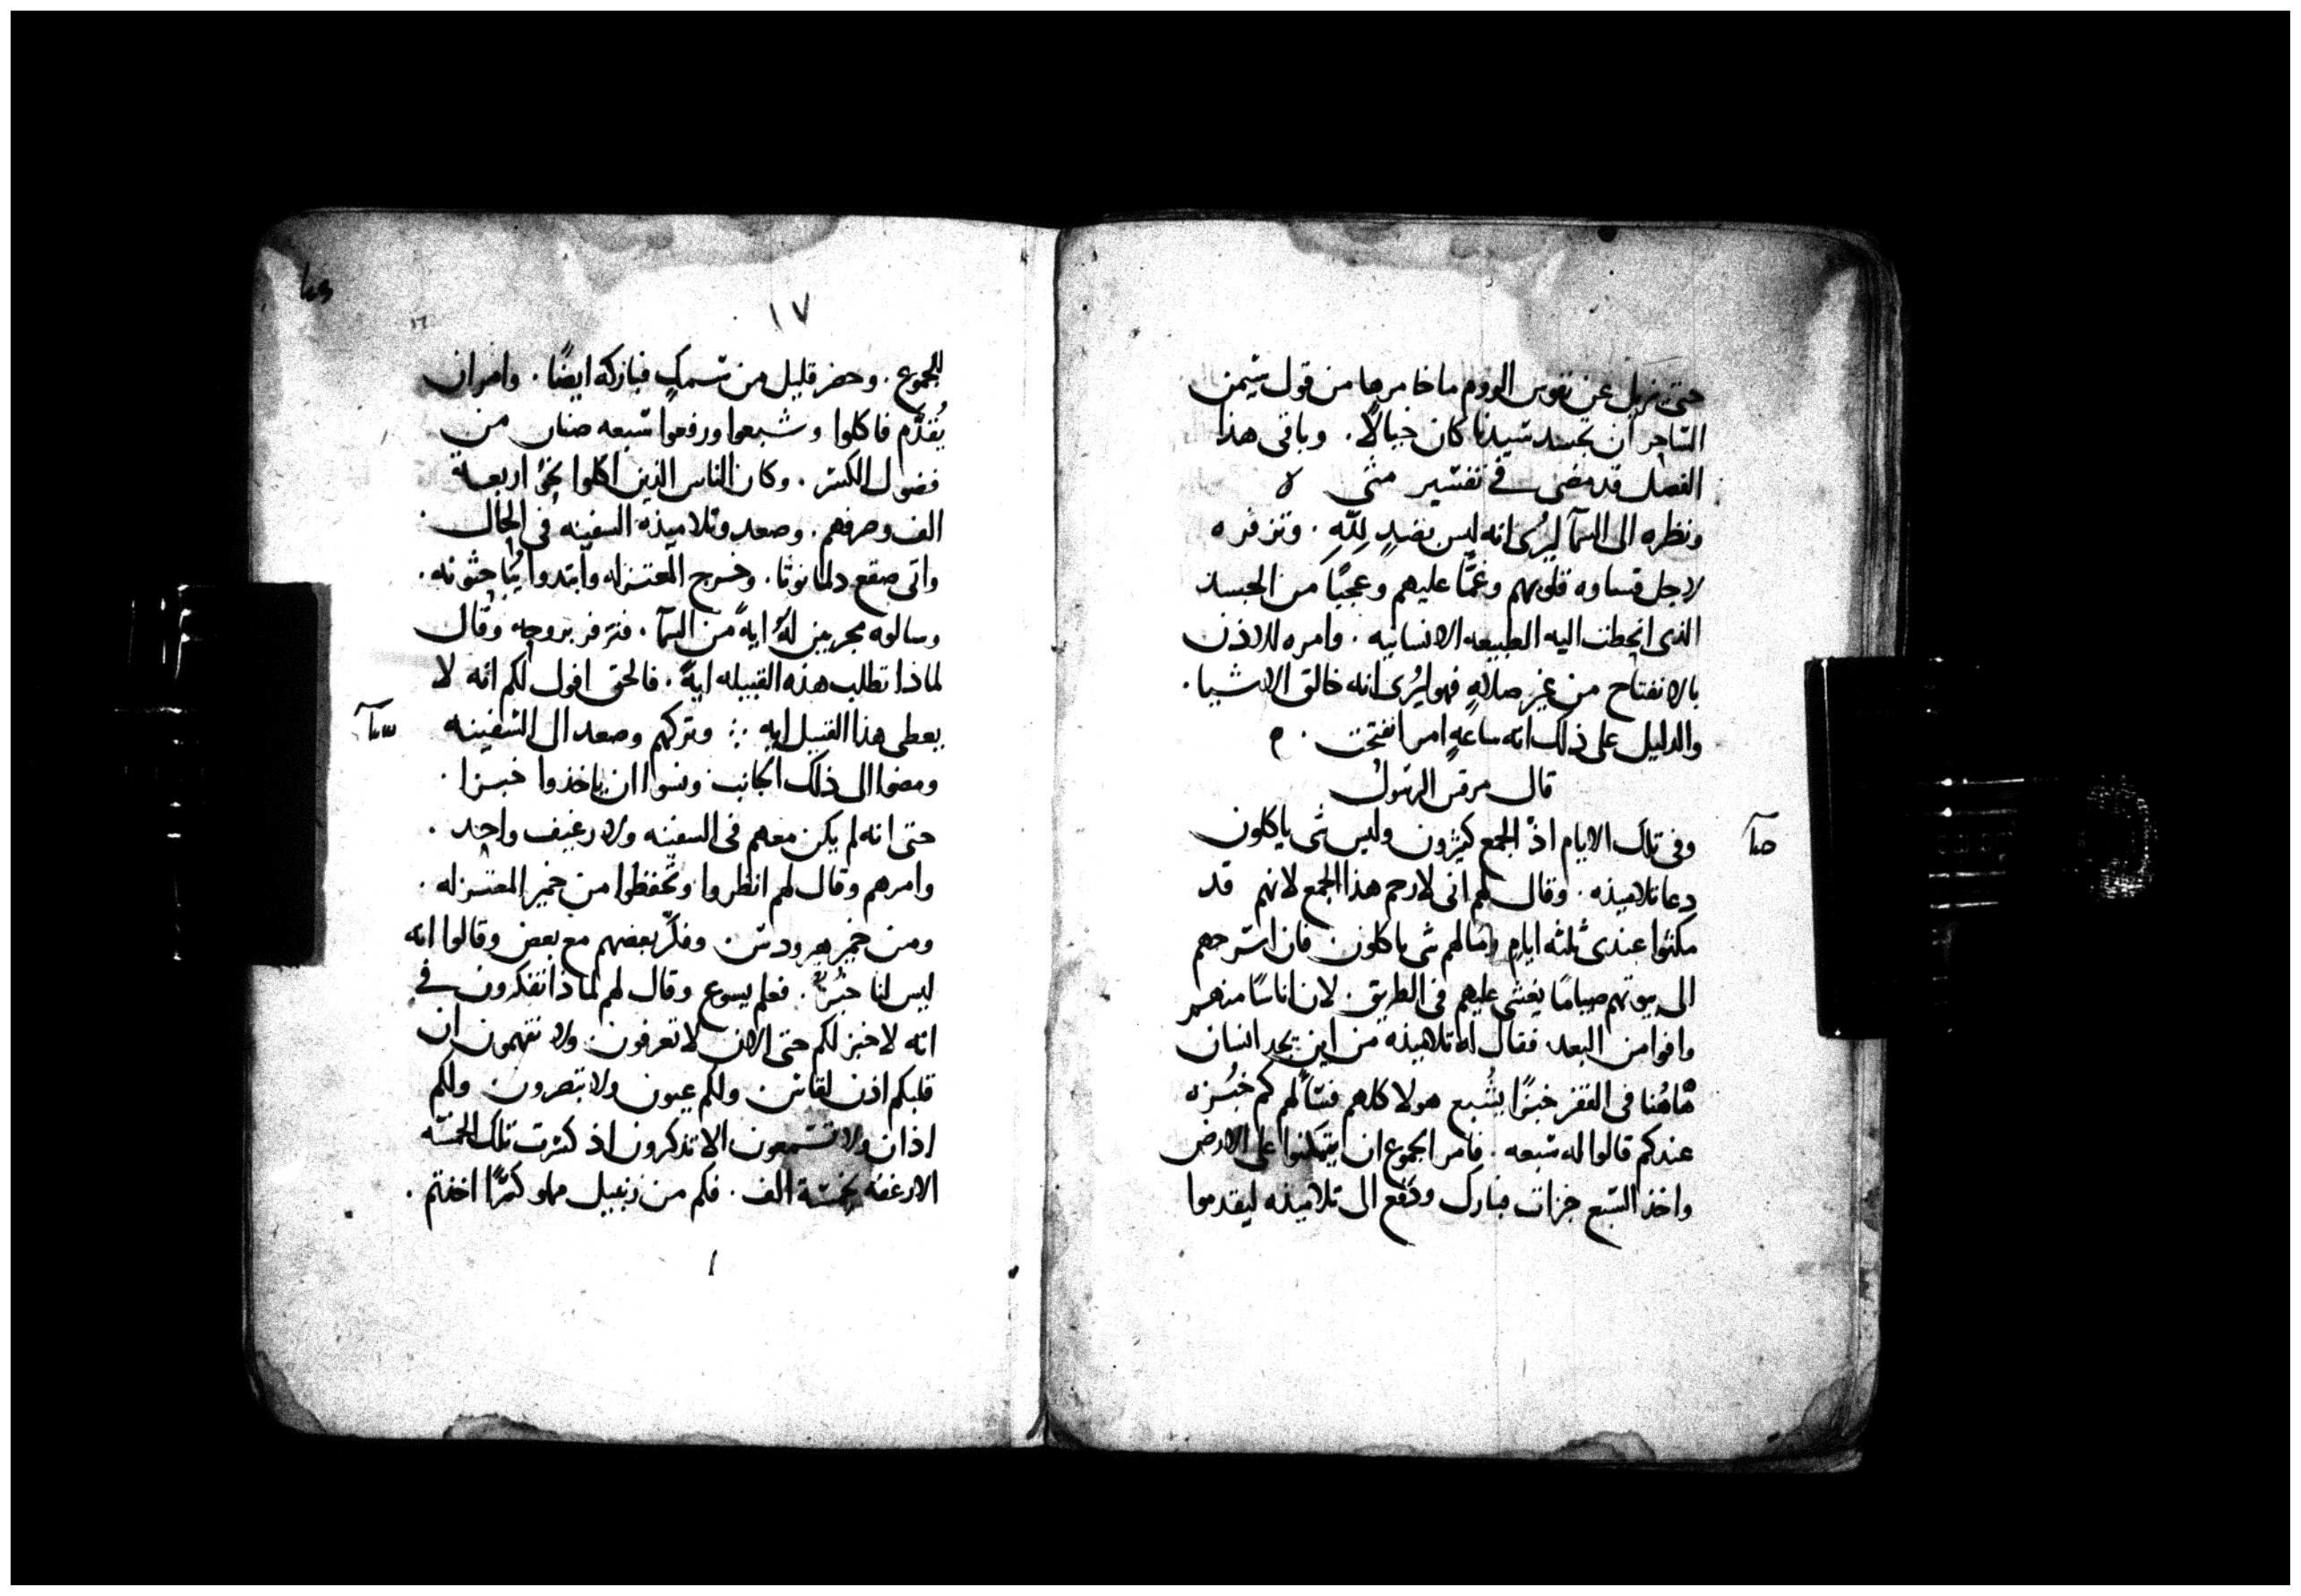 حتى نزيل عن نفوس الروم ما خامرها من قول سيمن
الساحر ان تجسد سيدنا كان خيالًا. وباقى هذا
الفصل قد مضى فى تفسير متى ه
ونظره الى السمآ ليُرى انه ليس بضدٍ لِلّه. وتزفره
لاجل قساوه قلوبهم وغمًّا عليهم وعجبًا من الحسد
الذى انحطت اليه الطبيعه الانسانيه. وامره للاذن
بالانفتاح من غير صلاهٍ فهو ليُرى انه خالق الاشيا.
والدليل على ذلك انه ساعهٍ امر انفتحت. م
قال مرقس الرسول
وفى تلك الايام اذ الجمع كثيرون وليس شى ياكلون
دعا تلاميذه. وقال لهم انى لارحم هذا الجمع لانهم قد
مكثوا عندى ثلثه ايام وما لهم شى ياكلون فان اسرحهم
الى بيوتهم صيامًا يغشى عليهم فى الطريق. لان اناسًا منهم
وافوا من البعد. فقال له تلاميذه من اين يجد انسان
هاهُنا فى القفز خبزًا يُشبع هولا كلهم فسالهم كم خُبزه
عندكم قالوا له سبعه. فامر الجموع ان يتكئوا على الارض
واخذ السبع خزات فبارك ودفع الى تلاميذه ليقدموا
١٧
للجموع. وحضر قليل من سمكٍ فباركه ايضًا. وامر ان
يُقدَّم فاكلوا وشبعوا ورفعوا سبعه صنان من
فضول الكسر. وكان الناس الذين اكلوا نحوُ اربعة
الف وصرفهم. وصعد وتلاميذه السفينه فى الحال.
واتى صقع دلمانوثا. وخرج المعتزله وابتدوا يُباحثونه.
وسالوه مجربين لهُ ايةً من السمآ. فتزفر بروحه وقال
لماذا تطلب هذه القبيله ايةً. فالحق اقول لكم انه لا
يعطى هذا القبيل ايه ∴ وتركهم وصعد الى السفينه
ومضوا الى ذلك الجانب ونسوا ان ياخذوا خبزا.
حتى انه لم يكن معهم فى السفينه ولا رغيف واحد.
وامرهم وقال لهم انظروا وتحفظوا من خمير المعتزله.
ومن خمير هيرودس وفكّر بعضهم مع بعض وقالوا انه
ليس لنا خبُز. فعلم يسوع وقال لهم لماذا تفكرون فى
انه لا خبز لكم حتى الان لا تعرفون ولا تفهمون ان
قلبكم اذن لقاس ولكم عيون ولا تبصرون ولكم
اذان ولا تسمعون الا تذكرون اذ كسرت تلك الخمسه
الارغفه لخمسة الف. فكم من زنبيل مملو كسرًا اخذتم.